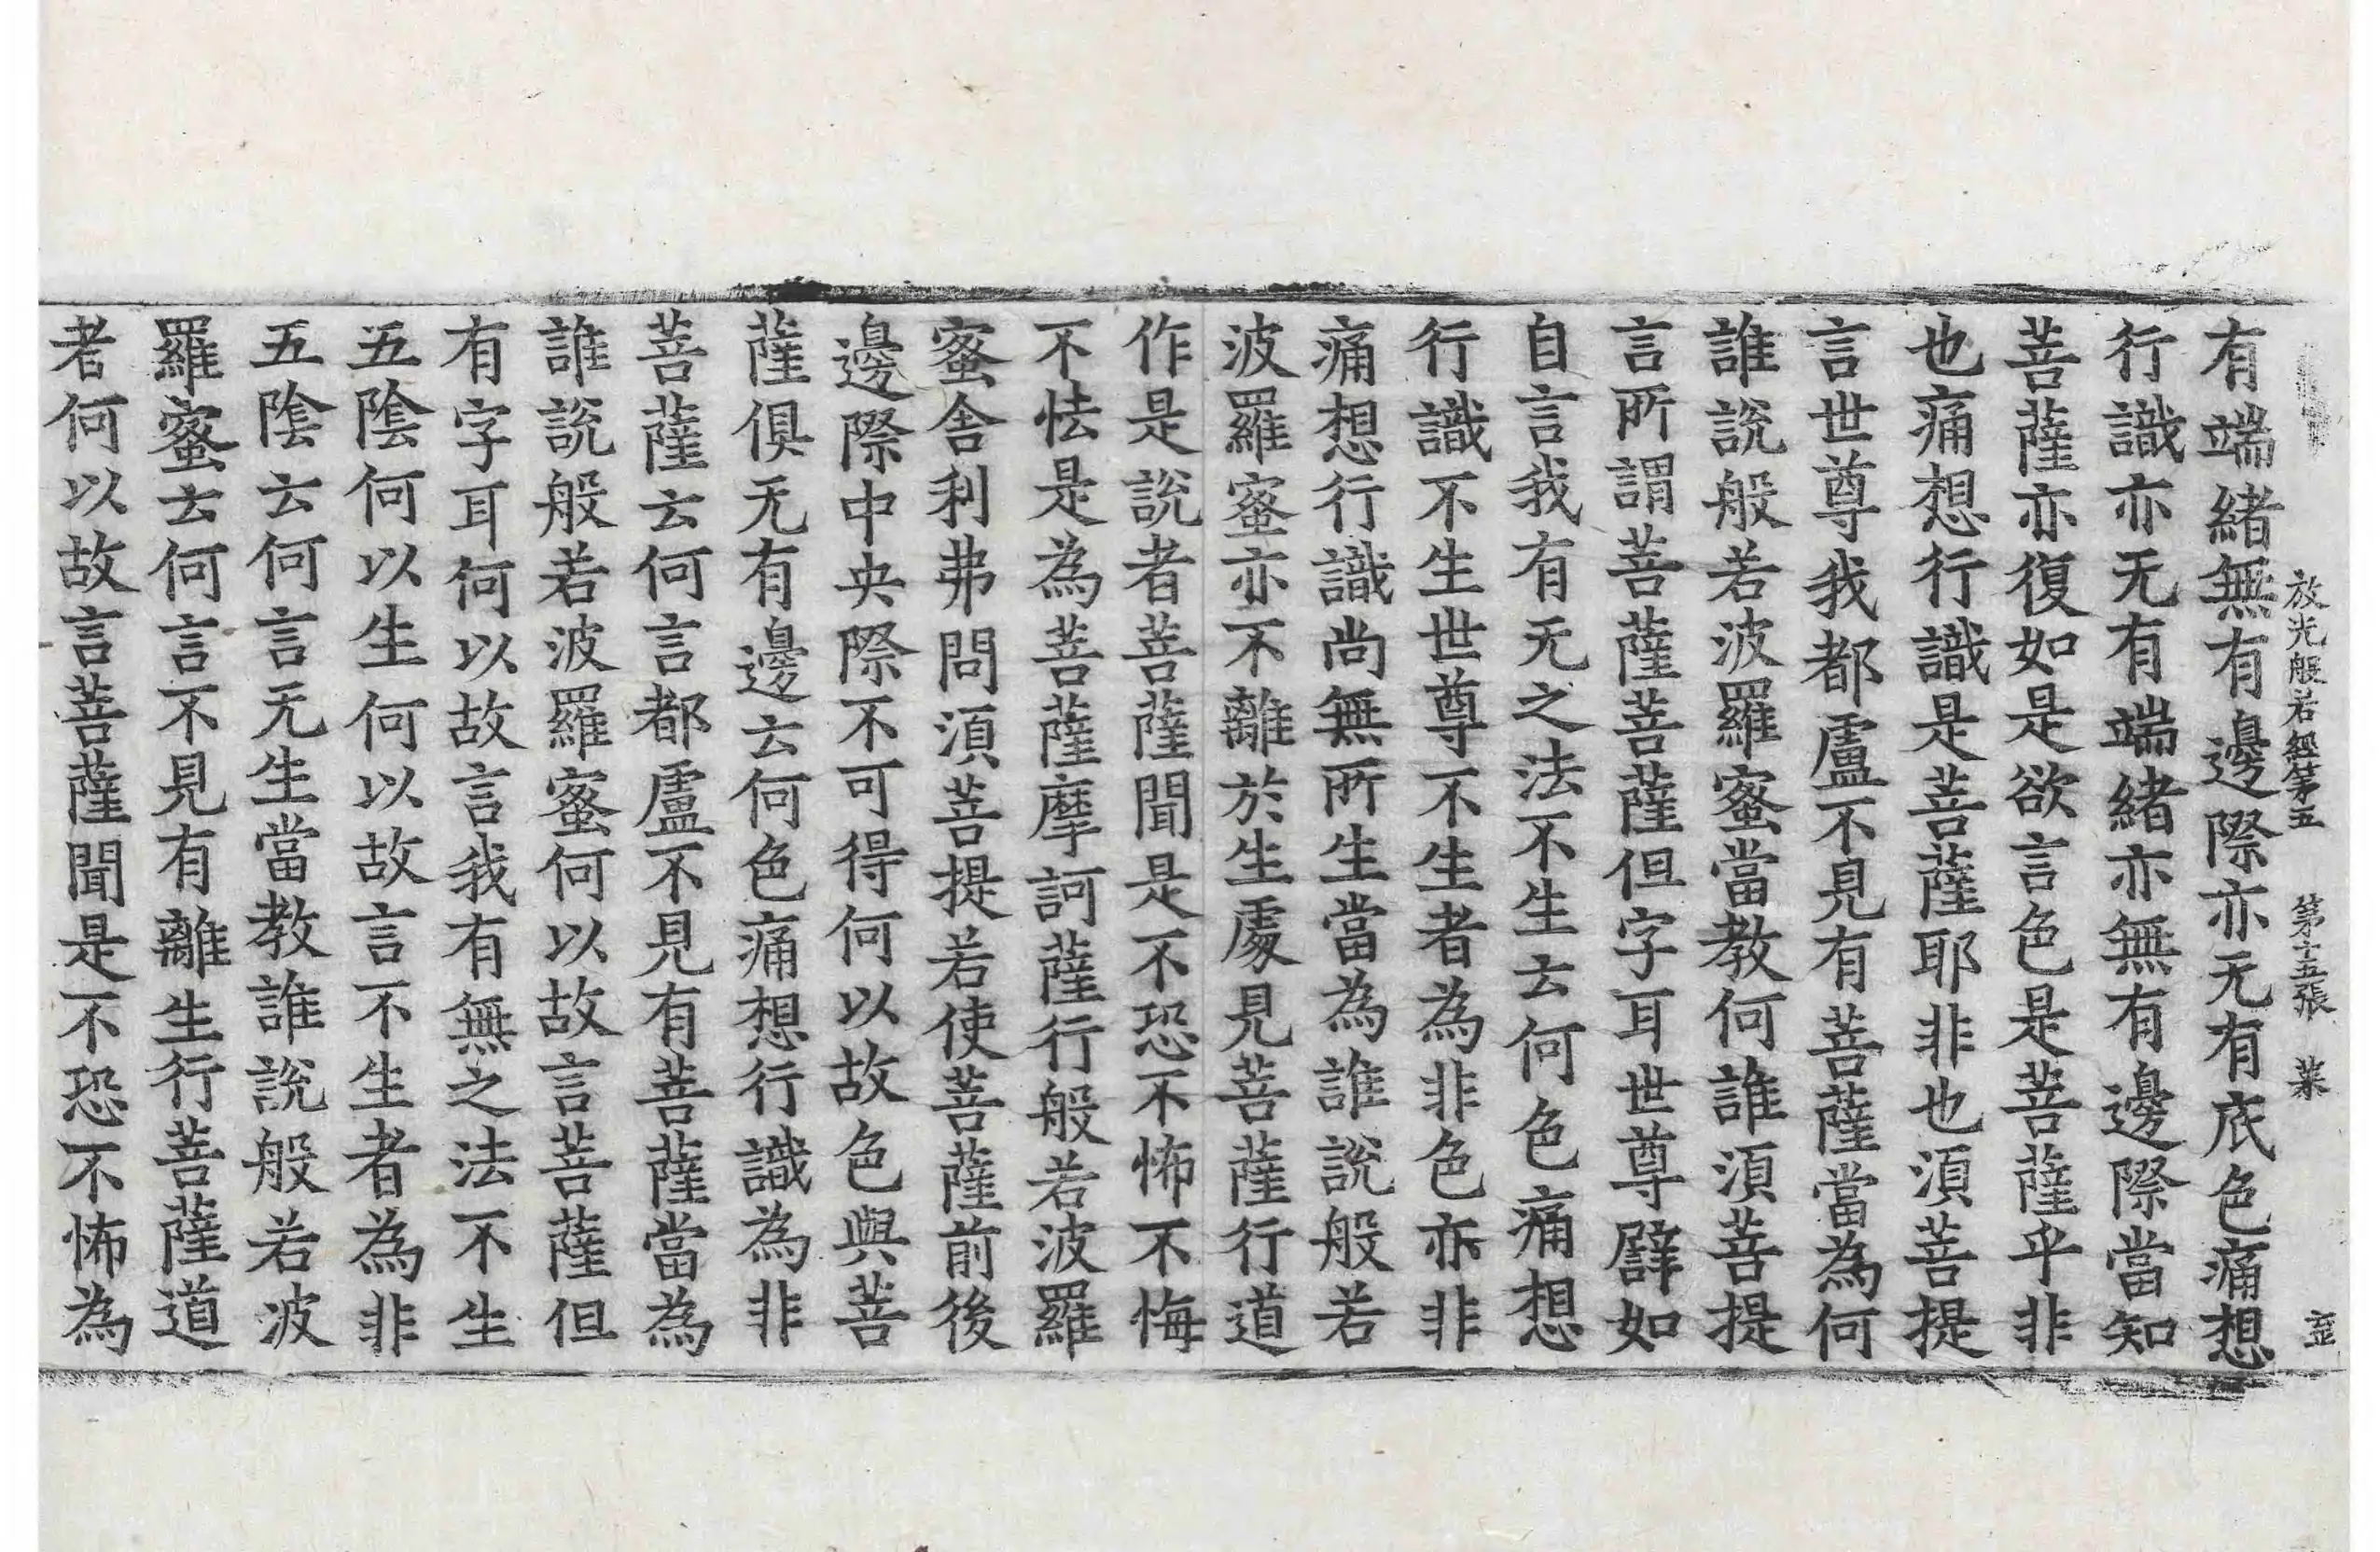 放光般若經第五　第十五張　菜
有端緒無有邊際亦无有底色痛想
行識亦无有端緒亦無有邊際當知
菩薩亦復如是欲言色是菩薩乎非
也痛想行識是菩薩耶非也須菩提
言世尊我都盧不見有菩薩當為何
誰說般若波羅蜜當教何誰須菩提
言所謂菩薩菩薩但字耳世尊譬如
自言我有无之法不生云何色痛想
行識不生世尊不生者為非色亦非
痛想行識尚無所生當為誰說般若
波羅蜜亦不離於生處見菩薩行道
作是說者菩薩聞是不恐不怖不悔
不怯是為菩薩摩訶薩行般若波羅
蜜舍利弗問須菩提若使菩薩前後
邊際中央際不可得何以故色與菩
薩俱无有邊云何色痛想行識為非
菩薩云何言都盧不見有菩薩當為
誰說般若波羅蜜何以故言菩薩但
有字耳何以故言我有無之法不生
五陰何以生何以故言不生者為非
五陰云何言无生當教誰說般若波
羅蜜云何言不見有離生行菩薩道
者何以故言菩薩聞是不恐不怖為